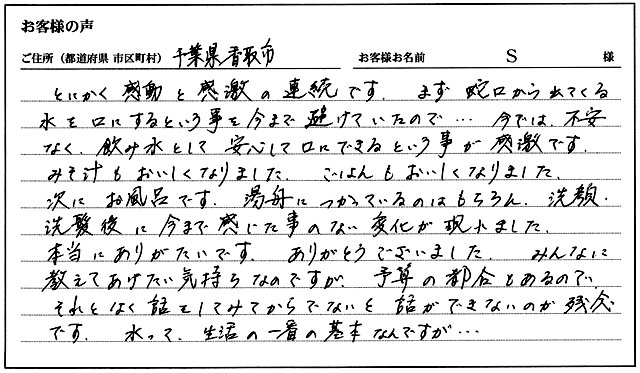 お客様の声
ご住所（都道府県 市区町村） 千葉県香取市 お客様お名前 S 様
とにかく感動と感激の連続です。まず蛇口から出てくる
水を口にするという事を今まで避けていたので… 今では、不安
なく、飲み水として安心して口にできるという事が感激です。
みそ汁もおいしくなりました。ごはんもおいしくなりました。
次にお風呂です。湯舟につかっているのはもちろん、洗顔・
洗髪後に今まで感じた事のない変化が現れました。
本当にありがたいです。ありがとうございました。みんなに
教えてあげたい気持ちなのですが、予算の都合もあるので、
それとなく話をしてみてからでないと話ができないのが残念
です。水って、生活の一番の基本なんですが…